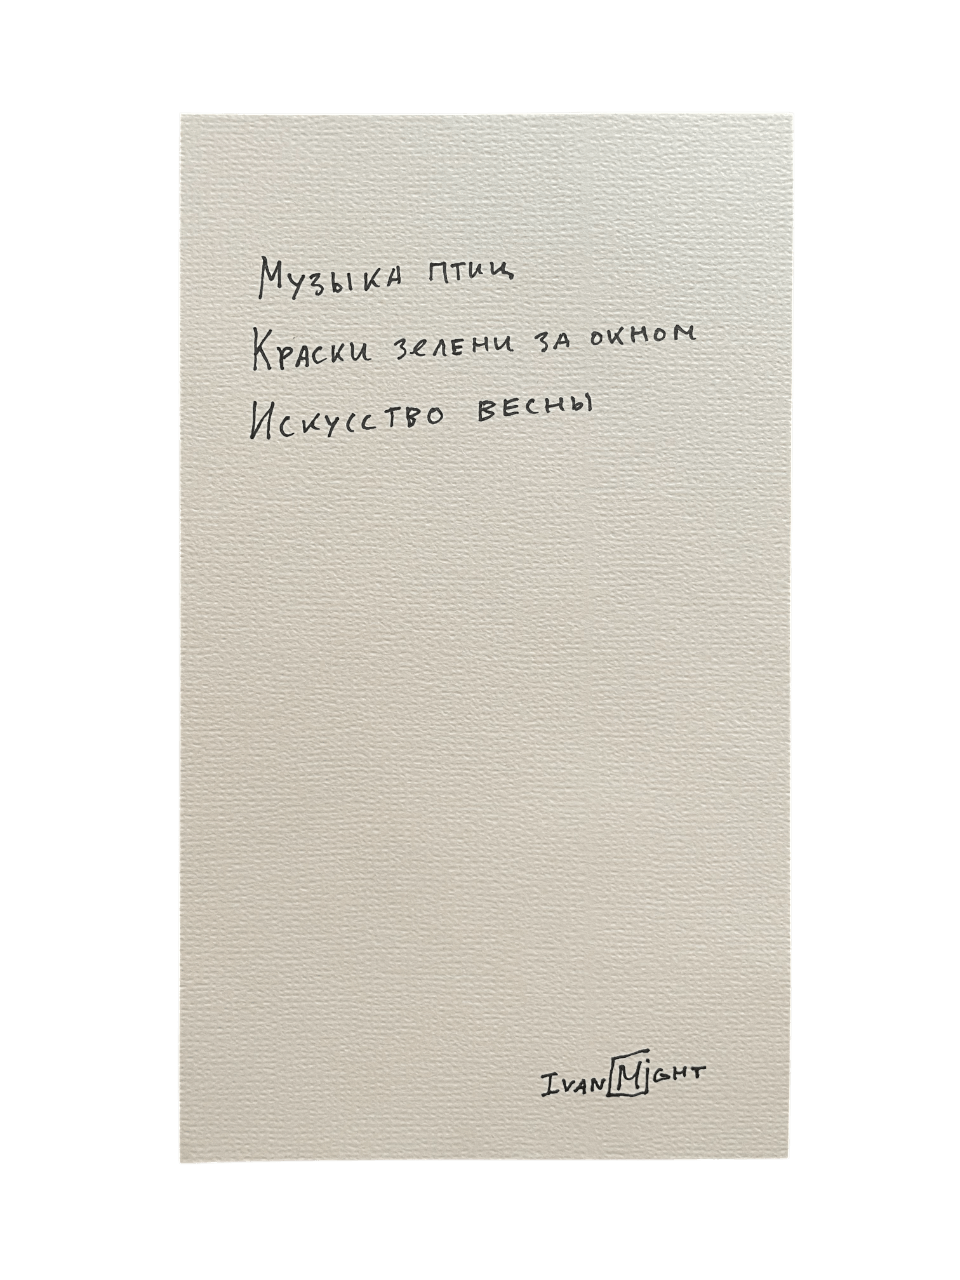 Музыка птиц
Краски зелени за окном
Искусство весны
Ivan Might